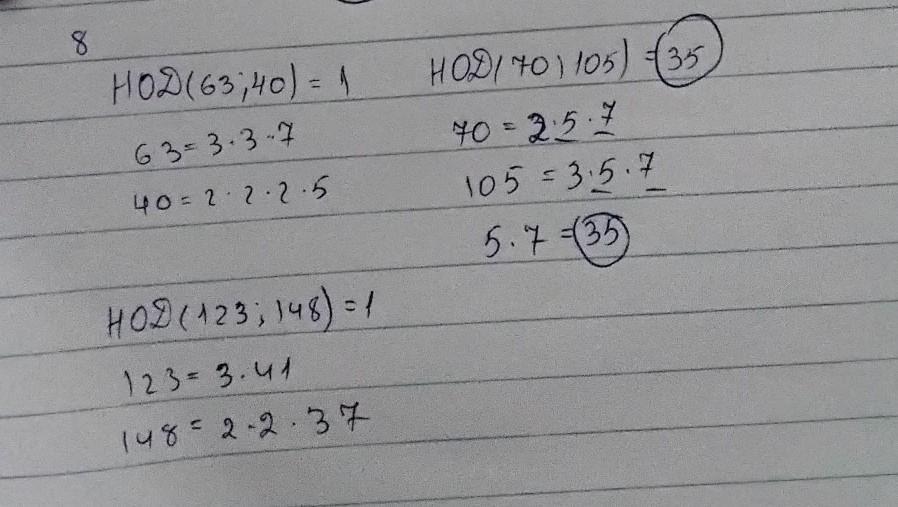 8
НОД(63;40) = 1
63 = 3·3·7
40 = 2·2·2·5
НОД(70;105) = 35
70 = 2·5·7
105 = 3·5·7
5·7 = 35
НОД(123;148) = 1
123 = 3·41
148 = 2·2·37